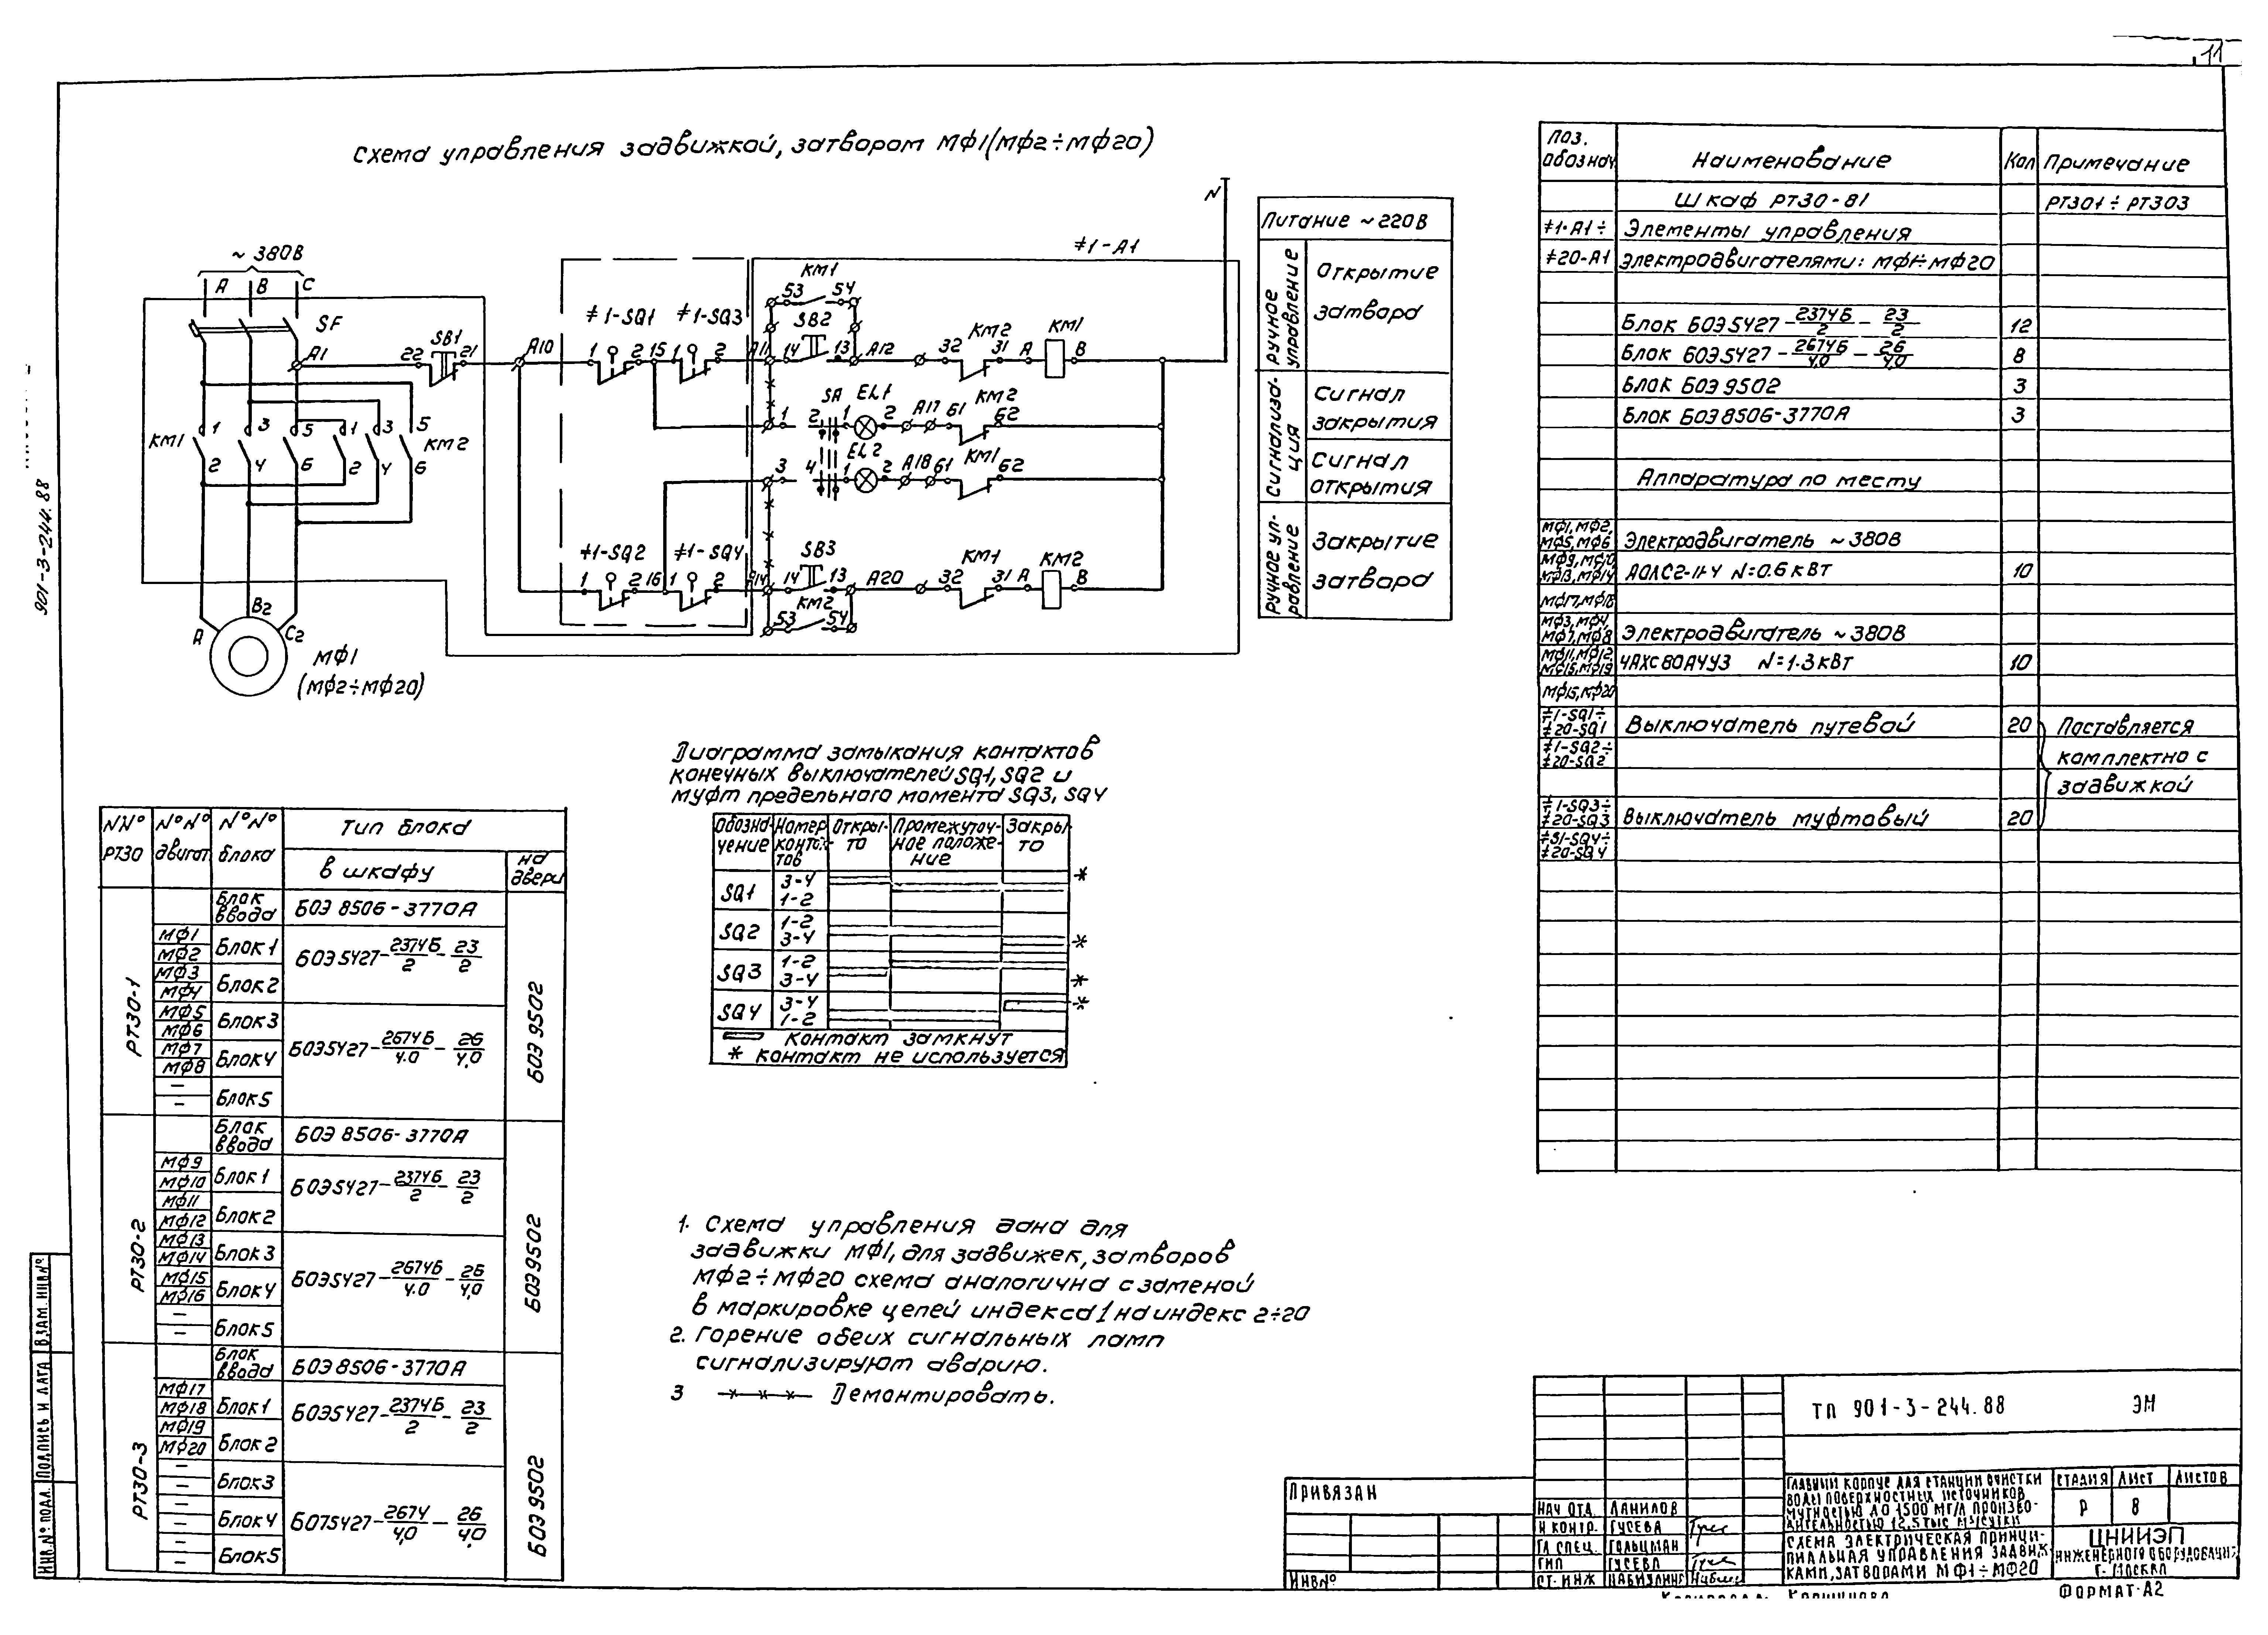 11
901-3-244.88
Схема управления задвижкой, затвором МФ1(МФ2÷МФ20)
~ 380В
А В С
SF
А1
22 SB1 21
А10
КМ1 1 3 5 1 3 5 КМ2
2 4 6 2 4 6
А В2 С2
МФ1
(МФ2÷МФ20)
≠1-А1
N
≠1-SQ1 ≠1-SQ3
1 2 15 1 2 А11
КМ1
53 54
SB2
14 13 А12
32 КМ2 31 А КМ1 В
1 2 SA 1 EL1 2 А17 61 КМ2 62
3 4 1 EL2 2 А18 61 КМ1 62
≠1-SQ2 ≠1-SQ4
1 2 16 1 2 А14
SB3
14 13 А20
32 КМ1 31 А КМ2 В
КМ2
53 54
Питание ~220В
Ручное управление
Открытие затвора
Сигнализация
Сигнал закрытия
Сигнал открытия
Ручное управление
Закрытие затвора
Поз. обознач. Наименование Кол Примечание
Шкаф РТ30-81 РТ301÷РТ303
≠1-А1÷ Элементы управления
≠20-А1 электродвигателями: МФ1÷МФ20
Блок БОЭ5427-2374Б/2-23/2 12
Блок БОЭ5427-2674Б/4.0-26/4,0 8
Блок БОЭ 9502 3
Блок БОЭ8506-3770А 3
Аппаратура по месту
МФ1, МФ2, МФ5, МФ6 Электродвигатель ~380В
МФ9, МФ10, МФ13, МФ14 АОЛС2-11-4 N=0.6 кВт 10
МФ17, МФ18
МФ3, МФ4, МФ7, МФ8 Электродвигатель ~380В
МФ11, МФ12, МФ15, МФ19 4АХС80А4У3 N=1.3 кВт 10
МФ16, МФ20
≠1-SQ1÷ ≠20-SQ1 Выключатель путевой 20 Поставляется
≠1-SQ2÷ ≠20-SQ2 комплектно с
задвижкой
≠1-SQ3÷ ≠20-SQ3 Выключатель муфтовый 20
≠S1-SQ4÷ ≠20-SQ4
Диаграмма замыкания контактов
конечных выключателей SQ1, SQ2 и
муфт предельного момента SQ3, SQ4
Обозначение Номер контактов Открыто Промежуточное положение Закрыто
SQ1 3-4 *
1-2
SQ2 1-2
3-4 *
SQ3 1-2
3-4 *
SQ4 3-4 *
1-2
Контакт замкнут
* контакт не используется
NN° РТ30 N°N° двигат. N°N° блока Тип блока
в шкафу на двери
РТ30-1
Блок ввода БОЭ 8506-3770А
МФ1 МФ2 Блок1 БОЭ5427-2374Б/2-23/2
МФ3 МФ4 Блок2
МФ5 МФ6 Блок3
МФ7 МФ8 Блок4 БОЭ5427-2674Б/4.0-26/4,0
– – Блок5
БОЭ 9502
РТ30-2
Блок ввода БОЭ 8506-3770А
МФ9 МФ10 Блок1 БОЭ5427-2374Б/2-23/2
МФ11 МФ12 Блок2
МФ13 МФ14 Блок3
МФ15 МФ16 Блок4 БОЭ5427-2674Б/4.0-26/4,0
– – Блок5
БОЭ9502
РТ30-3
Блок ввода БОЭ 8506-3770А
МФ17 МФ18 Блок1 БОЭ5427-2374Б/2-23/2
МФ19 МФ20 Блок2
– – Блок3
– – Блок4 БО75427-2674/4,0-26/4,0
– – Блок5
БОЭ 9502
1. Схема управления дана для
задвижки МФ1, для задвижек, затворов
МФ2÷МФ20 схема аналогична с заменой
в маркировке цепей индекса 1 на индекс 2÷20
2. Горение обеих сигнальных ламп
сигнализируют аварию.
3 —х—х—х— Демонтировать.
ТП 901-3-244.88 ЭМ
Привязан
ИНВ№
Нач отд. Данилов
Н контр. Гусева
Гл спец. Гольцман
ГИП Гусева
Ст. инж
Главный корпус для станции очистки
воды поверхностных источников
мутностью до 1500 мг/л произво-
дительностью 12,5 тыс м³/сутки
Стадия Лист Листов
Р 8
Схема электрическая принци-
пиальная управления задвиж-
ками, затворами МФ1÷МФ20
ЦНИИЭП
инженерного оборудования
г. Москва
Формат-А2
ИНВ.№ ПОДЛ. ПОДПИСЬ И ДАТА ВЗАМ. ИНВ№